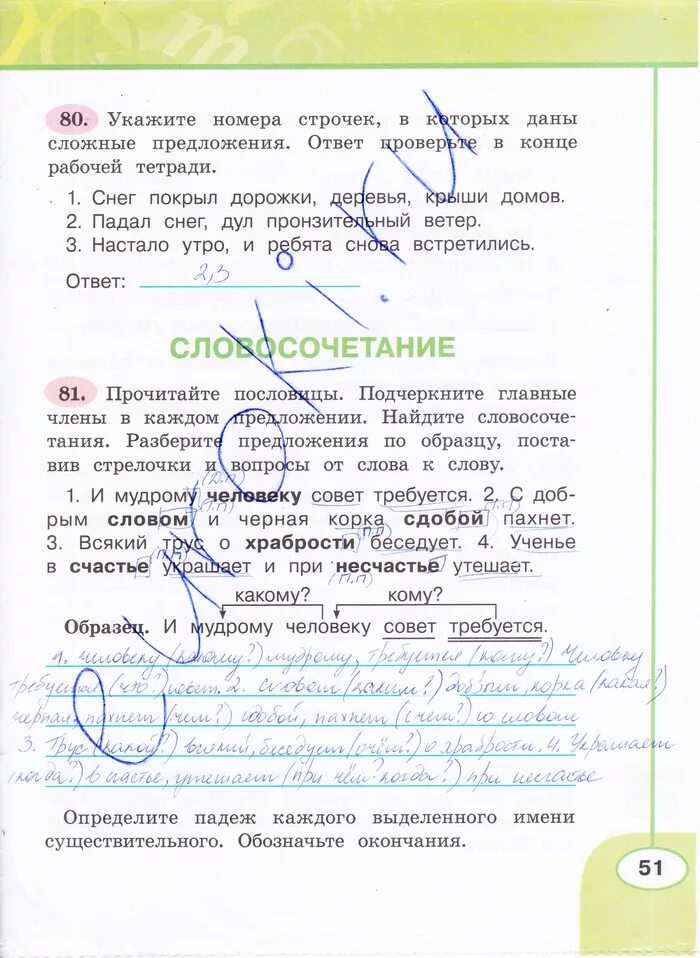 80. Укажите номера строчек, в которых даны
сложные предложения. Ответ проверьте в конце
рабочей тетради.
1. Снег покрыл дорожки, деревья, крыши домов.
2. Падал снег, дул пронзительный ветер.
3. Настало утро, и ребята снова встретились.
Ответ: 2,3
СЛОВОСОЧЕТАНИЕ
81. Прочитайте пословицы. Подчеркните главные
члены в каждом предложении. Найдите словосоче-
тания. Разберите предложения по образцу, поста-
вив стрелочки и вопросы от слова к слову.
(Д.п)
1. И мудрому человеку совет требуется. 2. С доб-
(Т.п) (Т.п)
рым словом и черная корка сдобой пахнет.
(П.п)
3. Всякий трус о храбрости беседует. 4. Ученье
в счастье украшает и при несчастье утешает.
(П.п)
какому? кому?
Образец. И мудрому человеку совет требуется.
1. человеку (какому?) мудрому, требуется (кому?) человеку
требуется (что?) совет. 2. словом (каким?) добрым, корка (какая?)
черная, пахнет (чем?) сдобой, пахнет (с чем?) со словом
3. Трус (какой?) всякий, беседует (о чём?) о храбрости. 4. Украшает
(когда?) в счастье, утешает (при чём? когда?) при несчастье
Определите падеж каждого выделенного имени
существительного. Обозначьте окончания.
51